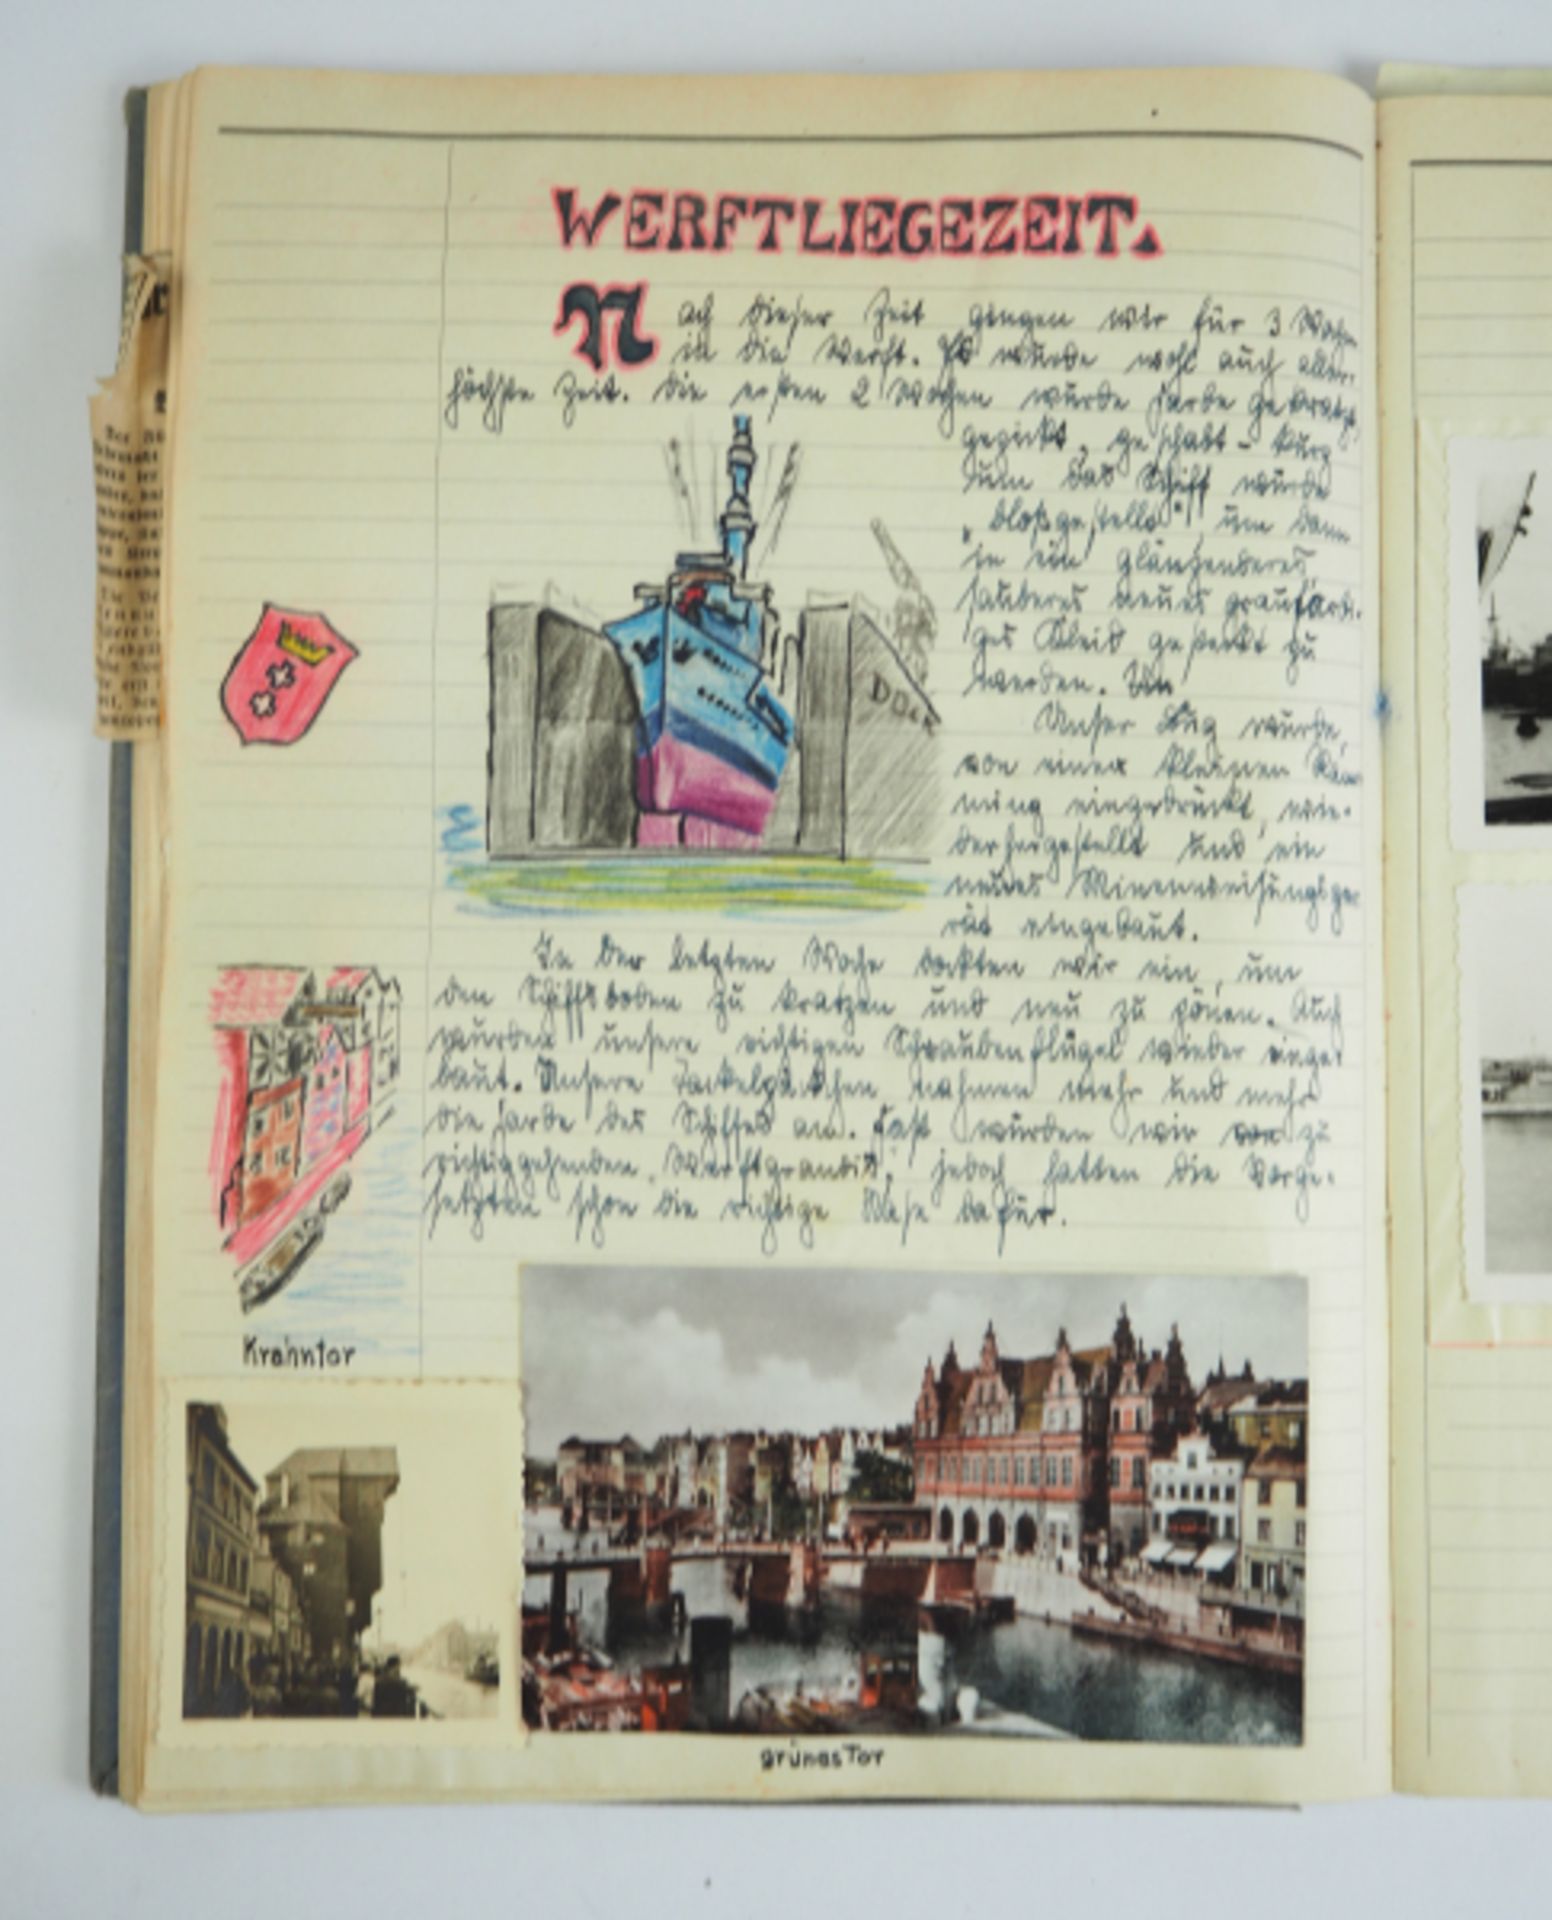 WERFTLIEGEZEIT.
Nach dieser Zeit gingen wir für 3 Woch
in die Werft. Es wurde wohl auch aller-
höchste Zeit. Die ersten 2 Wochen wurde Farbe gekratzt,
gepickt, geschabt - kurz
um das Schiff wurde
„bloßgestellt", um dann
in ein glänzenderes,
sauberes neues graufarbi-
ges Kleid gesteckt zu
werden.
Unser Bug wurde,
von einer kleinen Ram
mung eingedrückt, wie-
derhergestellt und ein
neues Minenweisungsge-
rät eingebaut.
In der letzten Woche dockten wir ein, um
den Schiffsboden zu kratzen und neu zu pönen. Auch
wurden unsere richtigen Schraubenflügel wieder einge-
baut. Unsere Takelpäckchen nahmen mehr und mehr
die Farbe des Schiffes an. Fast wurden wir zu
richtiggehenden „Werftgrandis", jedoch hatten die Vorge-
setzten schon die richtige Nase dafür.
DOCK
Krahntor
grünes Tor